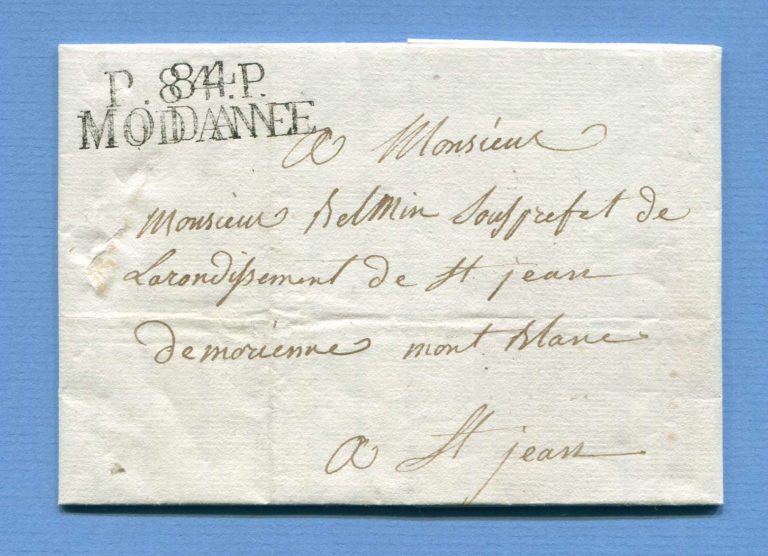 P. 84. P.
MODANNE
a Monsieur
Monsieur Belmin Sousprefet de
Larondissement de St jean
demorienne mont Blanc
a St jean